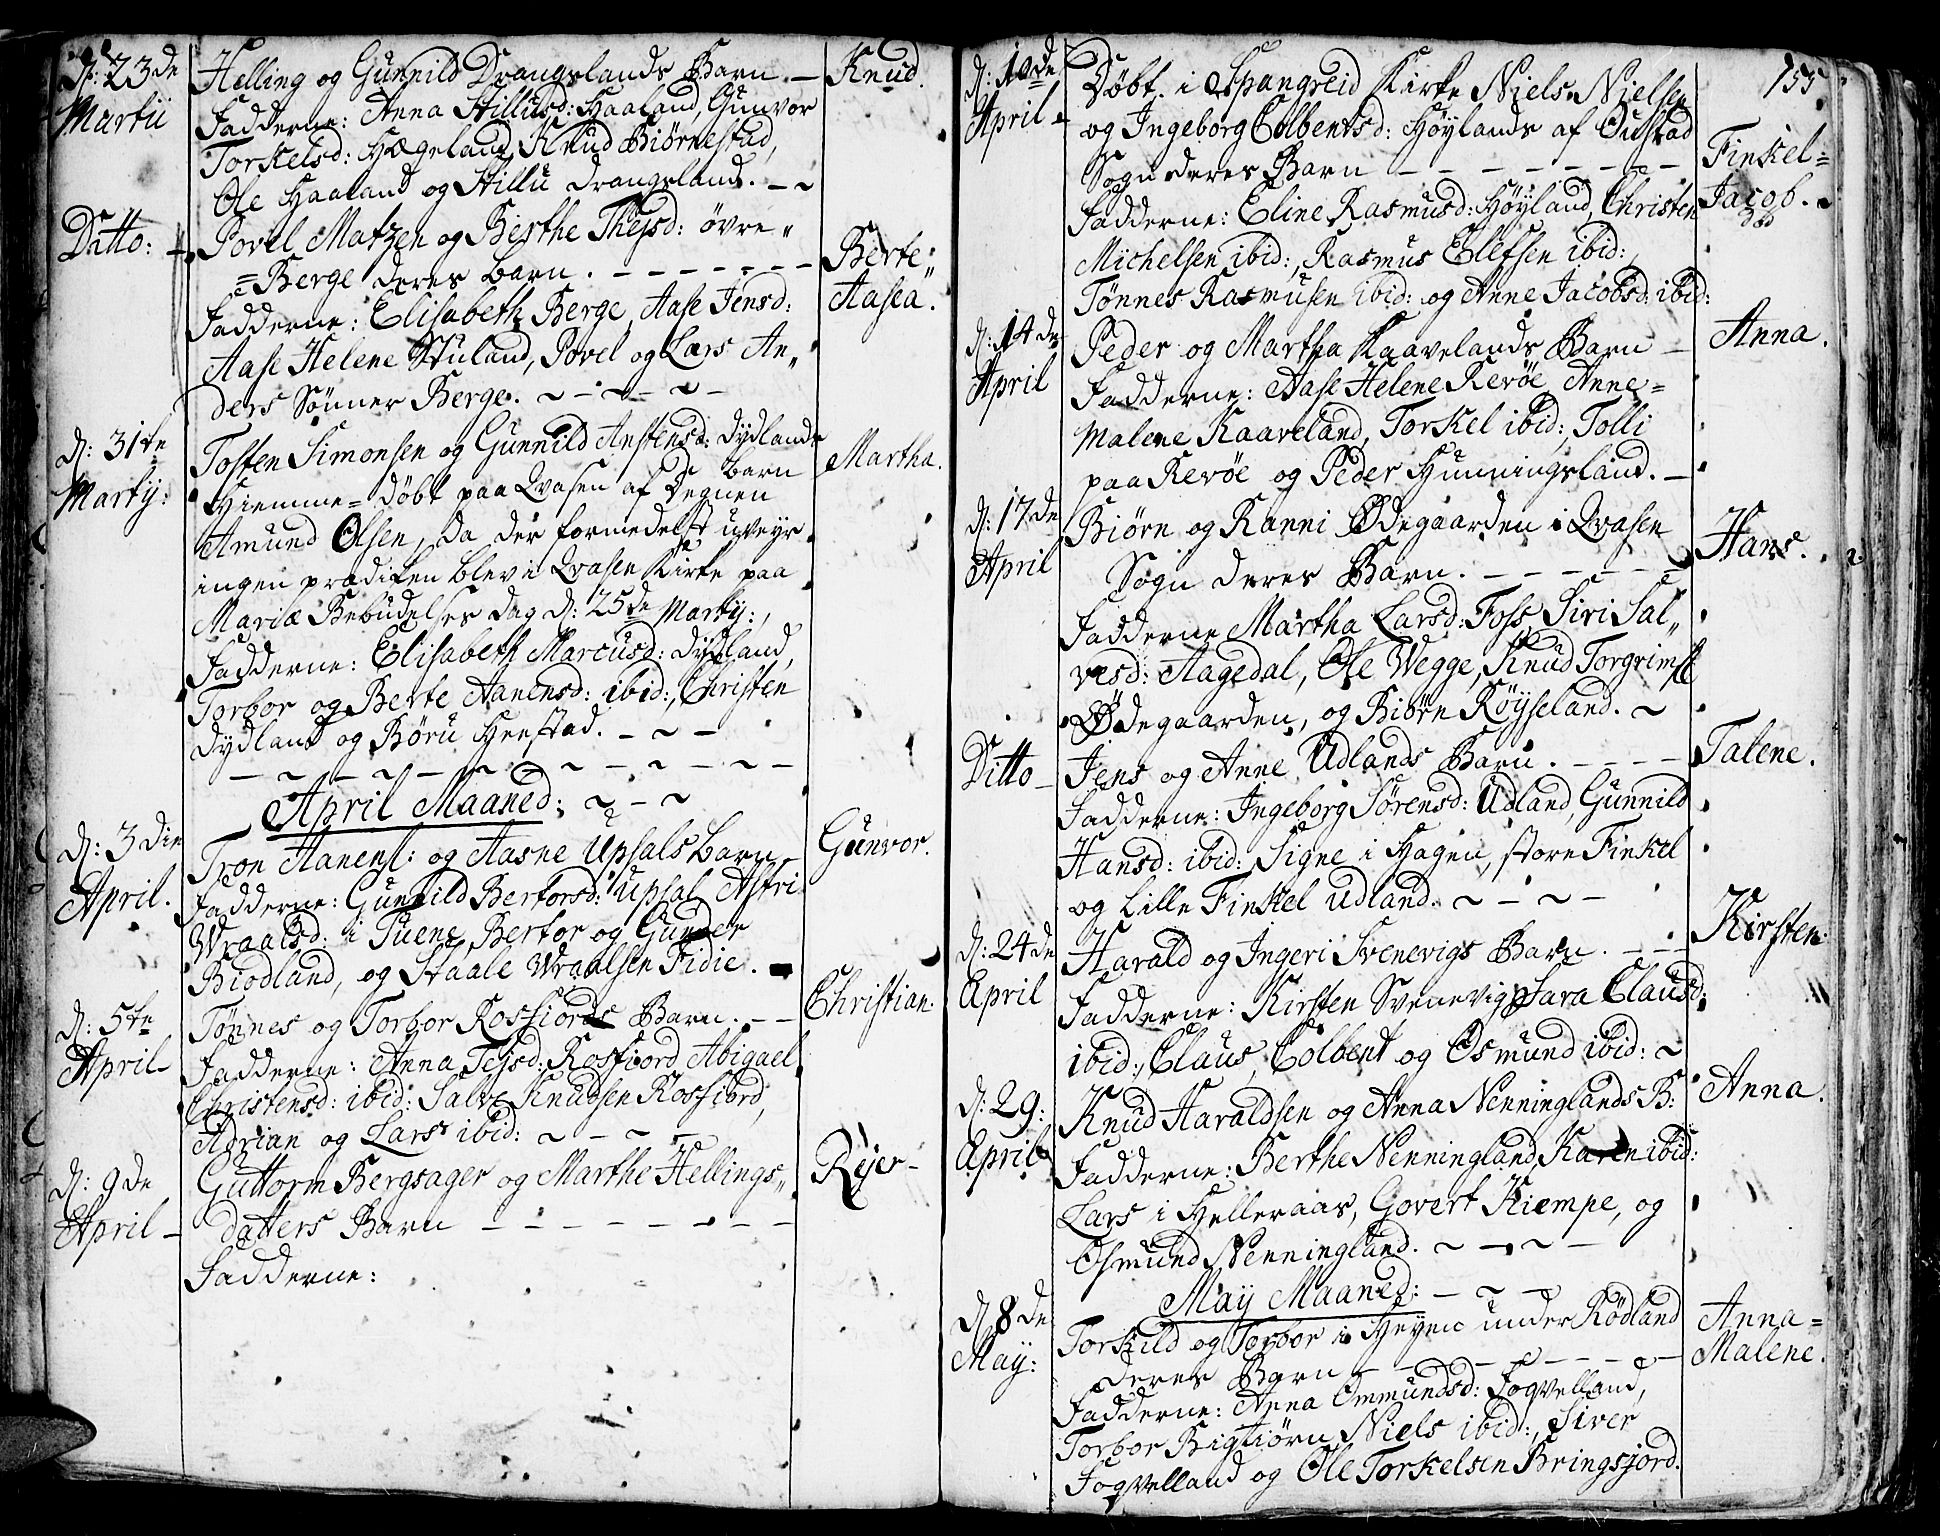 d: 23de Martii
Helling og Gunnild Drangslands Barn. —
Knud.
Fadderne: Anna Stillusd: Haaland, Gunvor
Torkelsd: Hægeland, Knud Biørnestad,
Ole Haaland og Stillu Drangsland. — ~
Ditto: —
Povel Matzen og Berthe Thejsd: øvre „
= Berge deres barn. — — — — — —
Berte „
Aasea.
Fadderne: Elisabeth Berge, Aase Jensd:
Aase Helene Stuland, Povel og Lars An„
ders Sønner Berge. ~ — ~ — ~ —
d: 31te Martij:
Tosten Simonsen og Gunnild Anstensd: Dydlands
Martha.
Hiemme= døbt paa Qvasen af Degnen barn
Amund Olsen, da der formedelst uveyr
ingen prædiken blev i Qvasen Kirke paa
Mariæ Bebudelses dag d: 25de Martij:,
Fadderne: Elisabeth Marcusd: Dydland,
Torbor og Berte Aanensd: ibid:, Christen
Dydland og Børu Heestad. — ~ —
— ~ — ~ — ~ — ~ — ~ —
April Maaned: ~ — ~
d: 3die April.
Tron Aanens: og Aasne Upsals barn
Gunvor.
Fadderne: Gunnild Bertorsd: Upsal, Astri
Wraalsd: i Tuene, Bertor og Gunder
Biodland, og Staale Wraalsen Fidie.
d: 5te April —
Tønnes og Torbor Rosfiords Barn. — —
Christian.
Fadderne: Anna Tejsd: Rosfiord, Abigael
Christensd: ibid: Salve Knudsen Rosfiord,
Adrian og Lars ibid: ~ — ~ —
d: 9de April —
Guttorm Bergsager og Marthe Hellings„
datters Barn — — — — — — — —
Rejer —
Fadderne:
155
d: 10de April —
Døbt. i Spangreid Kirke Niels Nielsen
og Ingeborg Colbentsd: Høylands af Oustad
Sogn deres Barn — — — — — — —
Finkel=
Jacob.
Fadderne: Eline Rasmusd: Høyland, Christen
Michelsen ibid:, Rasmus Elefsen ibid:,
Tønnes Rasmusen ibid: og Anne Jacobsd: ibid:
d: 14de April
Peder og Martha Kaavelands Barn —
Anna.
Fadderne: Aase Helene Revøe, Anne=
Malene Kaaveland, Torkel ibid:, Tolli
paa Revøe og Peder Hunningsland. —
d: 17de April
Biørn og Ranni Ødegaarden i Qvasen
Sogn deres Barn. — — — — — —
Hans.
Fadderne Martha Larsd: Foss Siri Sal„
vesd: Aagedal, Ole Wegge, Knud Torgrims:
Ødegaarden, og Biørn Röyseland. ~
Ditto —
Jens og Anne Udlands Barn. — — — —
Talene.
Fadderne: Ingeborg Sørensd: Udland, Gunnild
Hansd: ibid: Signe i Hagen, store Finkel
og Lille Finkel Udland. ~ — ~ —
d: 24de April
Harald og Ingeri Svenevigs Barn. — —
Kirsten.
Fadderne: Kirsten Svenevig, Sara Clausd:
ibid:, Claus, Colbent og Osmund ibid: ~
d: 29: April
Knud Haraldsen og Anna Nenninglands B:
Anna.
Fadderne: Berthe Nenningland, Karen ibid:
Lars i Helleraas, Govert Kiempe, og
Osmund Nenningland. ~ — ~ —
May Maaned: — ~ —
d: 8de May:
Torkild og Torbor i Heyen under Rødland
deres Barn — — — — — — — —
Anna=
Malene.
Fadderne: Anna Ommundsd: Foqvelland,
Torbor Bigtiørn, Niels ibid:, Siver
Foqvelland og Ole Torkelsen Bringsjord.